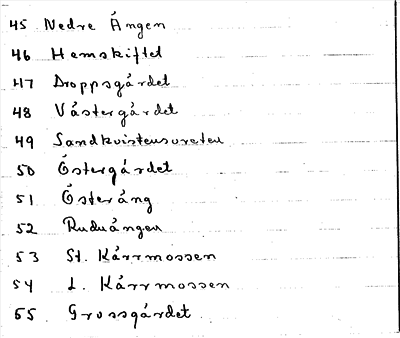 45 Nedre Ängen
46 Hemskiftet
47 Droppsgårdet
48 Västergärdet
49 Sandkvistensvreten
50 Östergärdet
51 Österäng
52 Ruduängen
53 St. Kärrmossen
54 L. Kärrmossen
55 Grossgärdet